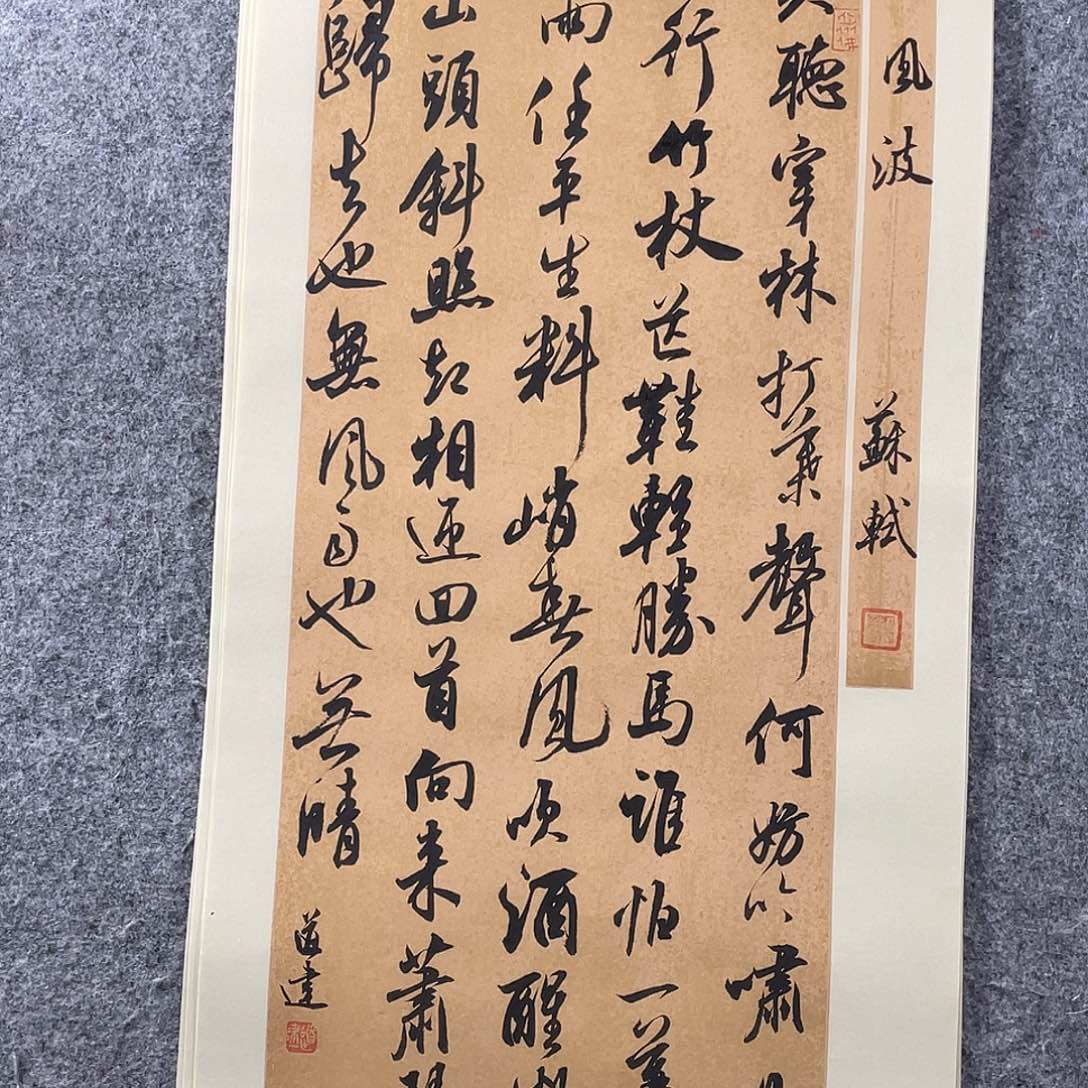 風波 蘇軾
聽穿林打葉聲何妨吟嘯
行竹杖芒鞋輕勝馬誰怕一蓑
雨任平生料峭春風吹酒醒
山頭斜照却相迎回首向来蕭
歸去也無風雨也无晴
道建